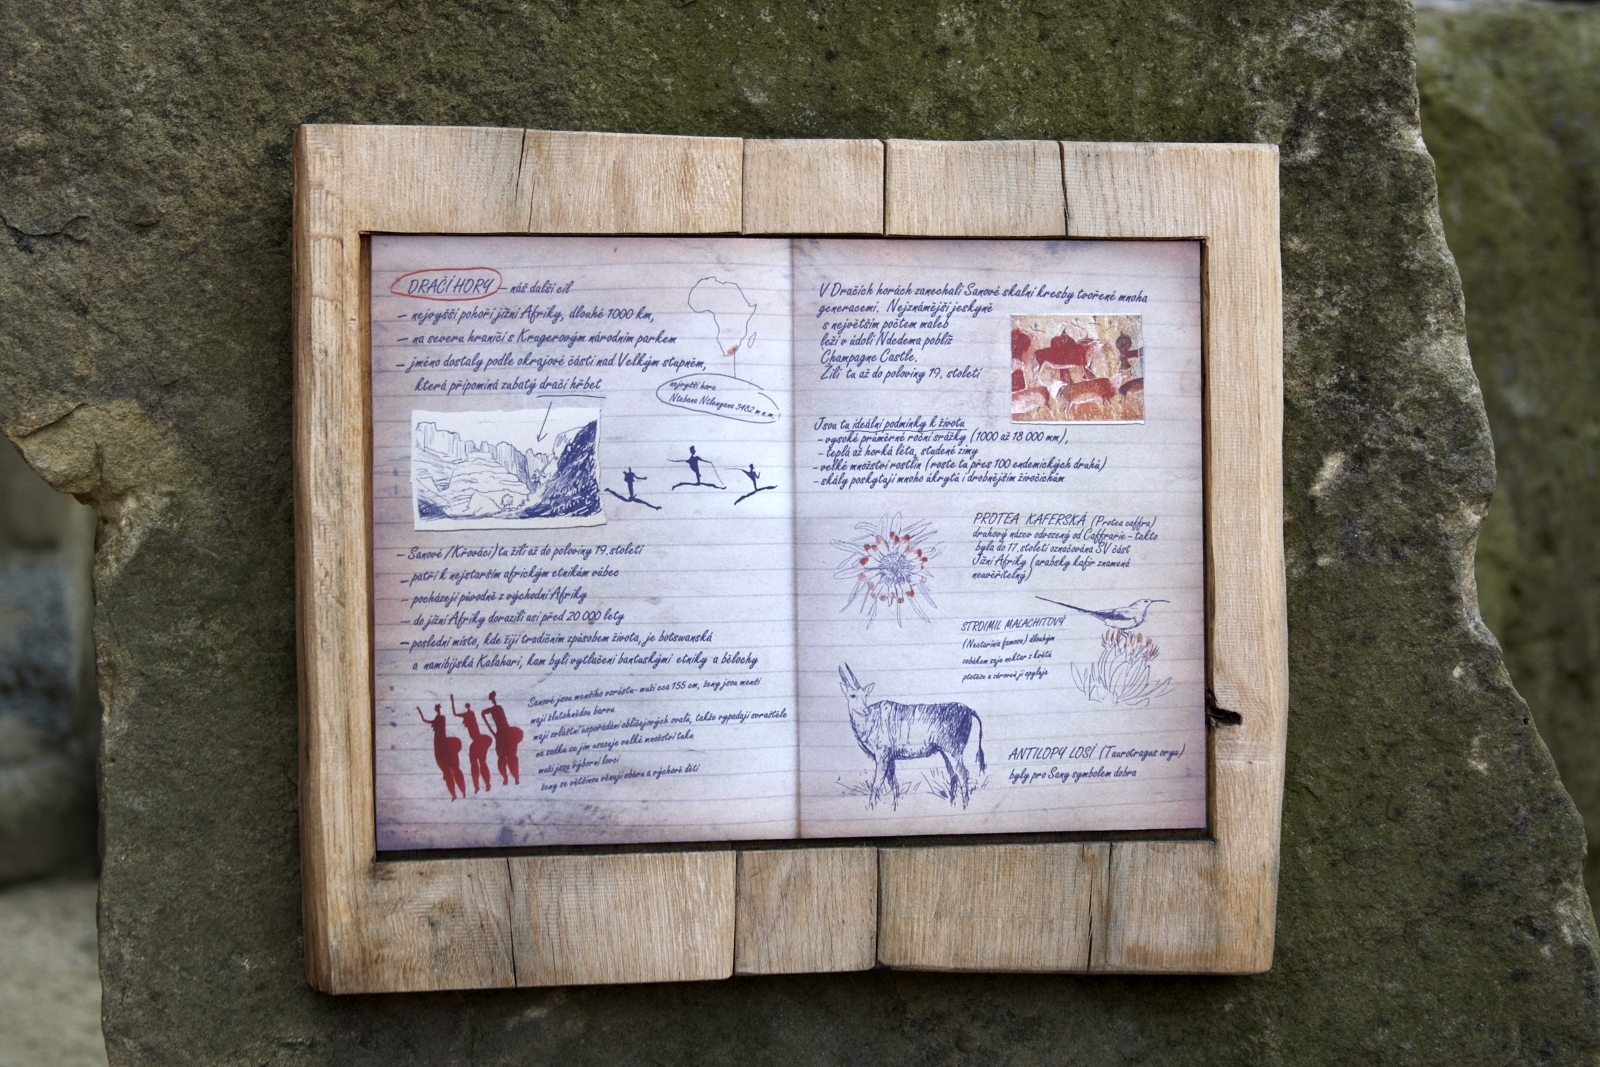 DRAČÍ HORY – náš další cíl
– nejvyšší pohoří jižní Afriky, dlouhé 1000 km,
– na severu hraničí s Krugerovým národním parkem
– jméno dostaly podle okrajové části nad Velkým stupněm,
která připomíná zubatý dračí hřbet
nejvyšší hora
Ntabana Ntlenyana 3482 m n.m.
– Sanové /Křováci) tu žili až do poloviny 19. století
– patří k nejstarším africkým etnikám vůbec
– pocházejí původně z východní Afriky
– do jižní Afriky dorazili asi před 20 000 lety
– poslední místo, kde žijí tradičním způsobem života, je botswanská
a namibijská Kalahari, kam byli vytlačeni bantuskými etniky a bělochy
Sanové jsou menšího vzrůstu- muži cca 155 cm, ženy jsou menší
mají žlutohnědou barvu
mají zvláštní uspořádání obličejových svalů, takže vypadají svraštěle
na zadku se jim usazuje velké množství tuku
muži jsou výborní lovci
ženy se většinou věnují sběru a výchově dětí
V Dračích horách zanechali Sanové skalní kresby tvořené mnoha
generacemi. Nejznámější jeskyně
s největším počtem maleb
leží v údolí Ndedema poblíž
Champagne Castle.
Žili tu až do poloviny 19. století
Jsou tu ideální podmínky k životu
– vysoké průměrné roční srážky (1000 až 18 000 mm),
– teplá až horká léta, studené zimy
– velké množství rostlin (roste tu přes 100 endemických druhů)
– skály poskytují mnoho úkrytů i drobnějším živočichům
PROTEA KAFERSKÁ (Protea caffra)
druhový název odvozený od Caffrarie – takto
byla do 17. století označována SV část
Jižní Afriky (arabsky kafir znamená
neuvěřitelný)
STRDIMIL MALACHITOVÝ
(Nectarinia famosa) dlouhým
zobákem saje nektar z květů
protéze a zároveň ji opyluje
ANTILOPY LOSÍ (Taurotragus oryx)
byly pro Sany symbolem dobra